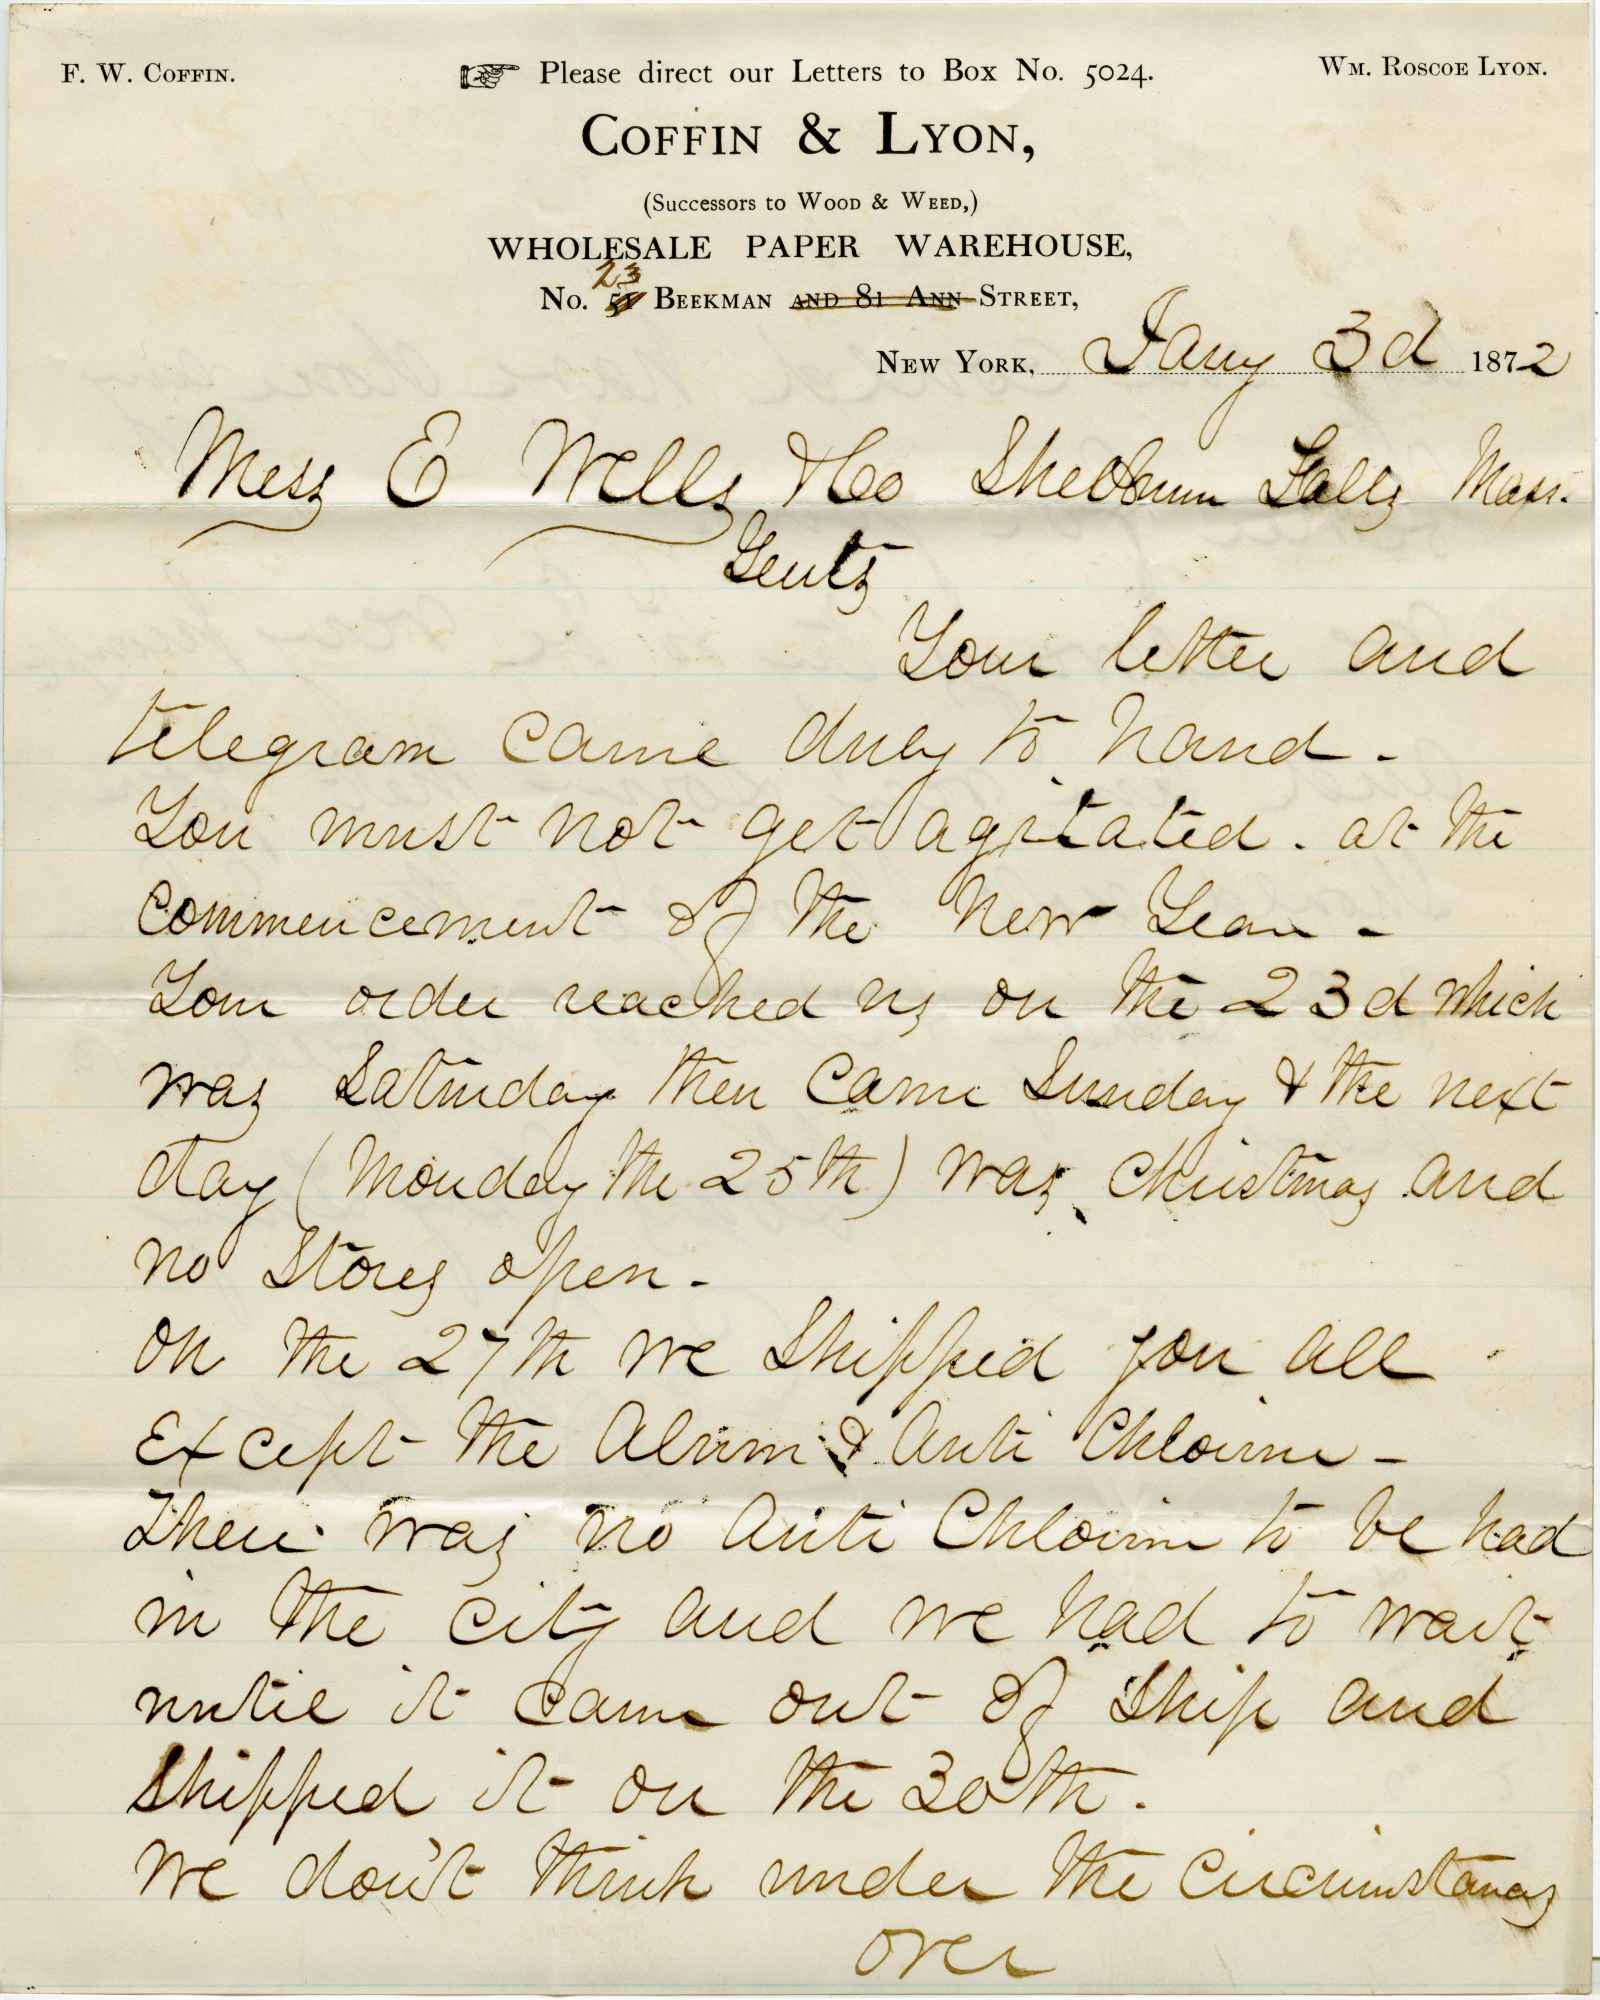 F. W. COFFIN.
Please direct our Letters to Box No. 5024.
WM. ROSCOE LYON.
COFFIN & LYON,
(Successors to WOOD & WEED,)
WHOLESALE PAPER WAREHOUSE,
23
No. BEEKMAN AND 81 ANN STREET,
NEW YORK, Jany 3d 1872
Mess E Wells & Co Shelburn Falls Mass.
Gents
Your letter and
telegram came duly to hand -
You must not get agitated. at the
commencement of the New Year -
Your order reached us on the 23d which
was Saturday then came Sunday & the next
day (Monday the 25th) was Christmas and
no Stores open -
On the 27th we Shipped you all
Except the Alum & Anti Chlorine -
There was no Anti Chlorine to be had
in the city and we had to wait
until it came out of Ship and
Shipped it on the 30th.
We don't think under the circumstances
over